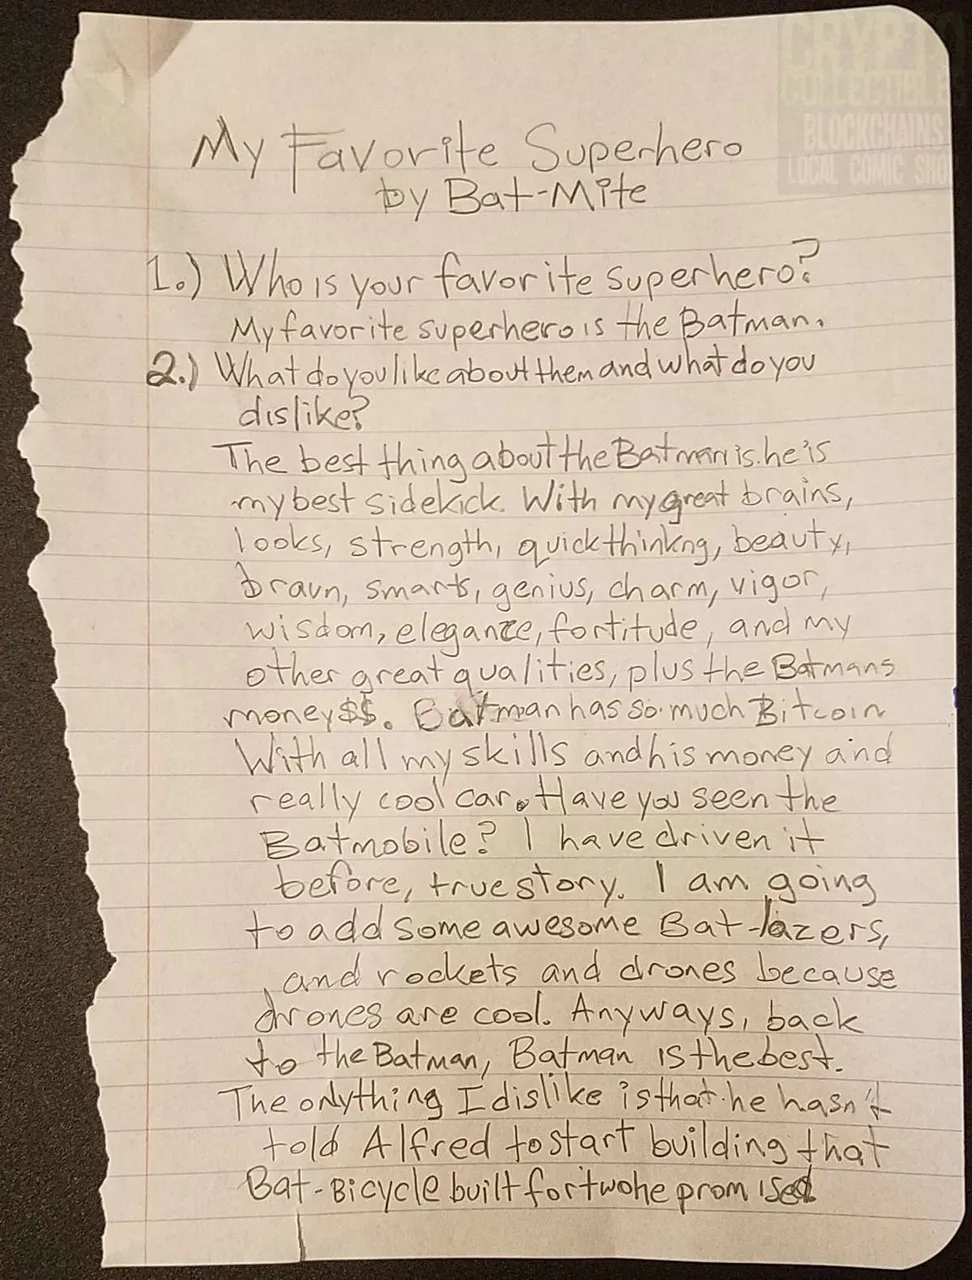 CRYPTO
COLLECTIBLES
BLOCKCHAINS
LOCAL COMIC SHO
My Favorite Superhero
by Bat-Mite
1.) Who is your favorite superhero?
My favorite superhero is the Batman.
2.) What do you like about them and what do you
dislike?
The best thing about the Batman is he is
my best sidekick. With my great brains,
looks, strength, quick thinkng, beauty,
braun, smarts, genius, charm, vigor,
wisdom, elegance, fortitude, and my
other great qualities, plus the Batmans
money $$. Batman has so much Bitcoin
With all my skills and his money and
really cool car. Have you seen the
Batmobile? I have driven it
before, true story. I am going
to add some awesome Bat-lazers,
and rockets and drones because
drones are cool. Anyways, back
to the Batman, Batman is the best.
The only thing I dislike is that he hasn't
told Alfred to start building that
Bat-Bicycle built for two he promised